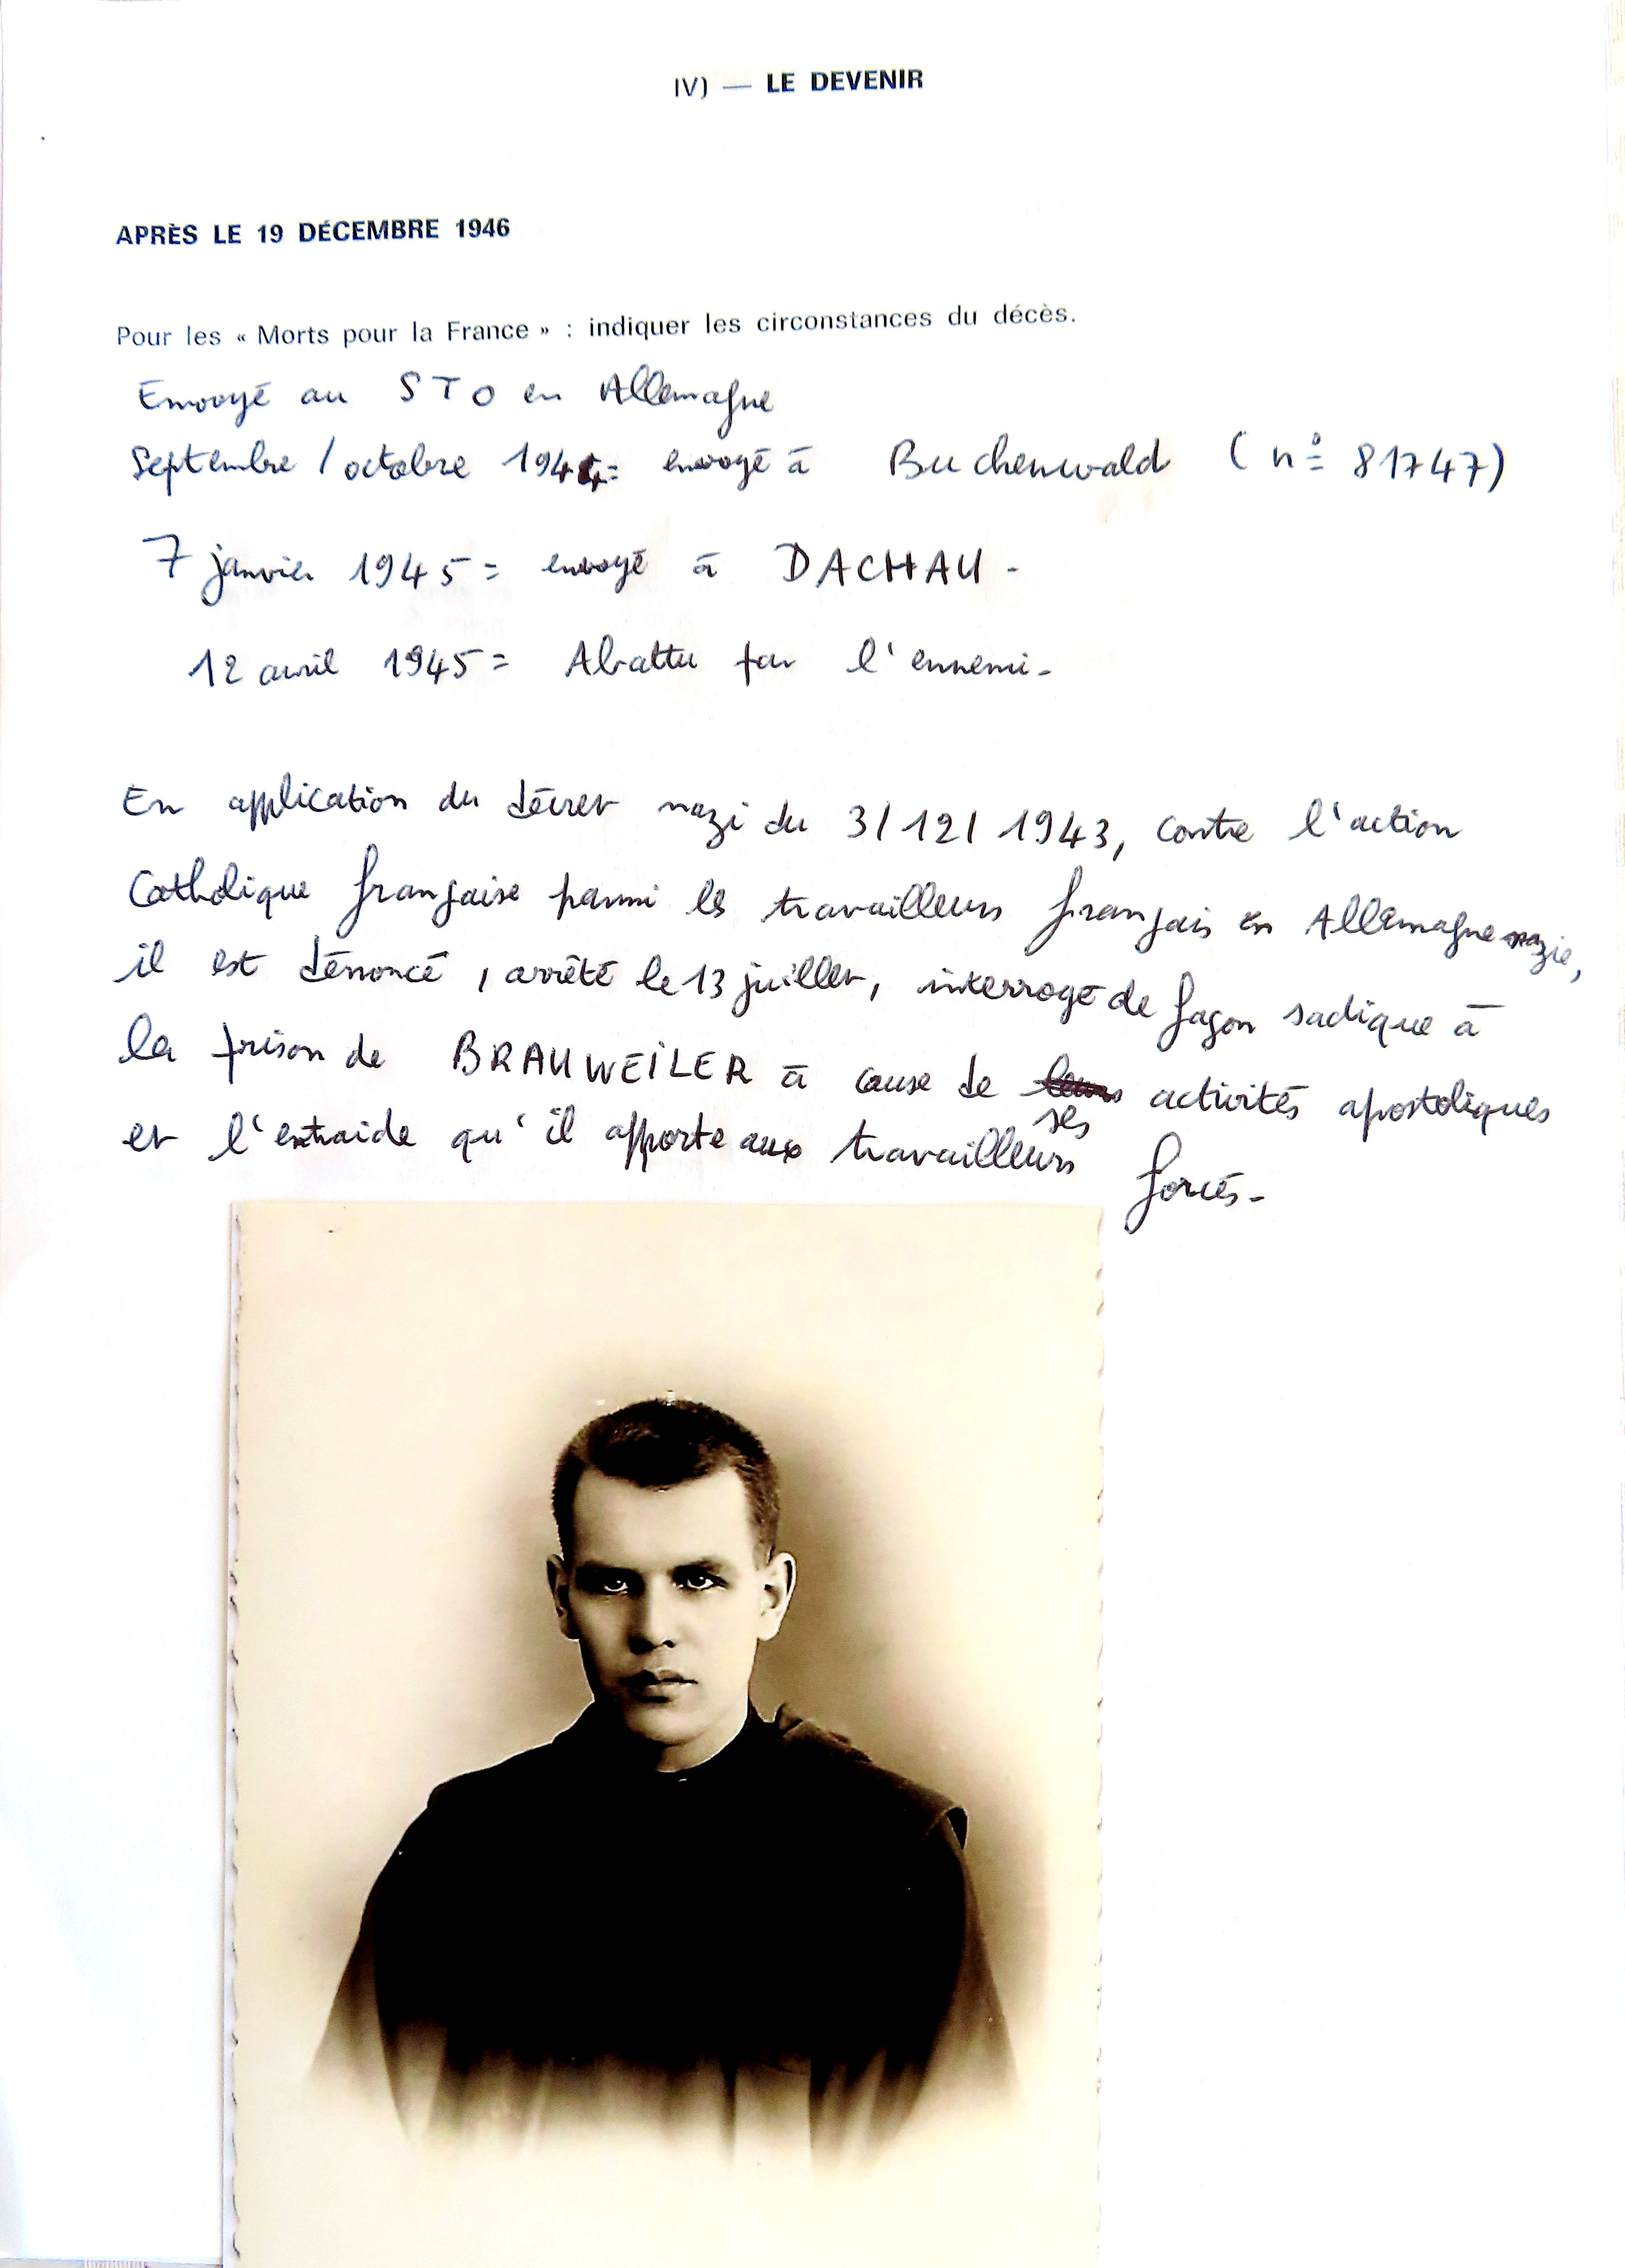 IV) — LE DEVENIR
APRÈS LE 19 DÉCEMBRE 1946
Pour les « Morts pour la France » : indiquer les circonstances du décès.
Envoyé au STO en Allemagne
Septembre / octobre 1944 = envoyé à Buchenwald (n° 81747)
7 janvier 1945 = envoyé à DACHAU -
12 avril 1945 = Abattu par l'ennemi -
En application du décret nazi du 3/12/1943, contre l'action
Catholique française parmi les travailleurs français en Allemagne nazie,
il est dénoncé, arrêté le 13 juillet, interrogé de façon sadique à
la prison de BRAUWEILER à cause de ses activités apostoliques
et l'entraide qu'il apporte aux travailleurs forcés -